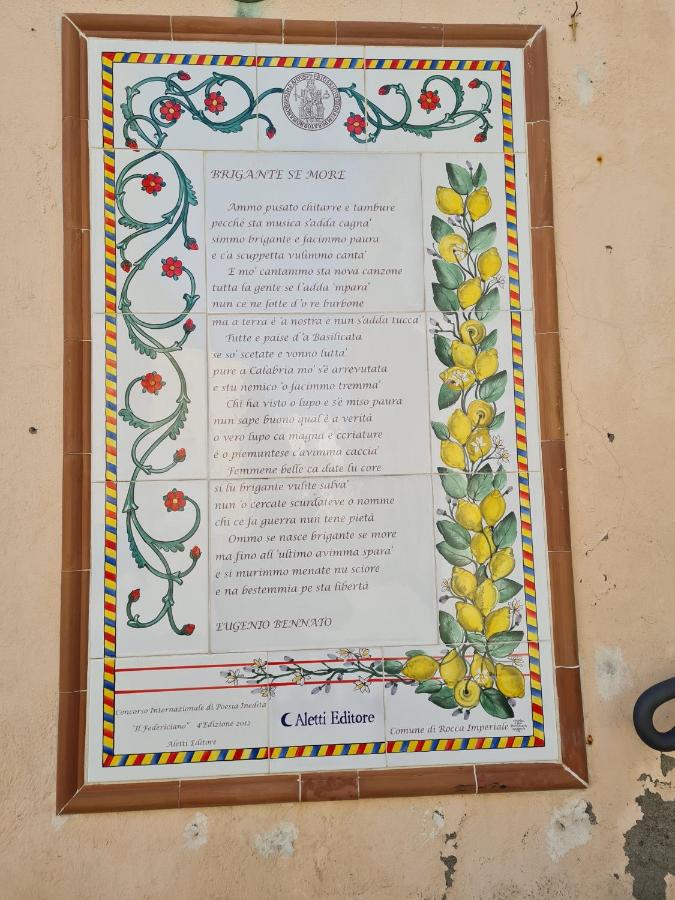 BRIGANTE SE MORE
Ammo pusato chitarre e tambure
pecché sta musica s'adda cagna'
simmo brigante e facimmo paura
e c'a scuppetta vulimmo canta'
E mo' cantammo sta nova canzone
tutta la gente se l'adda 'mpara'
nun ce ne fotte d'o re burbone
ma a terra è 'a nostra e nun s'adda tucca'
Tutte e paise d'a Basilicata
se so' scetate e vonno lutta'
pure a Calabria mo' s'è arrevutata
e stu nemico 'o facimmo tremma'
Chi ha visto o lupo e s'è miso paura
nun sape buono qual'è a verità
o vero lupo ca magna e ccriature
è o piemuntese c'avimma caccia'
Femmene belle ca date lu core
si lu brigante vulite salva'
nun 'o cercate scurdateve o nomme
chi ce fa guerra nun tene pietà
Ommo se nasce brigante se more
ma fino all'ultimo avimma spara'
e si murimmo menate nu sciore
e na bestemmia pe sta libertà
EUGENIO BENNATO
Concorso Internazionale di Poesia Inedita
"Il Federiciano" 4ª Edizione 2012
Aletti Editore
Aletti Editore
Comune di Rocca Imperiale